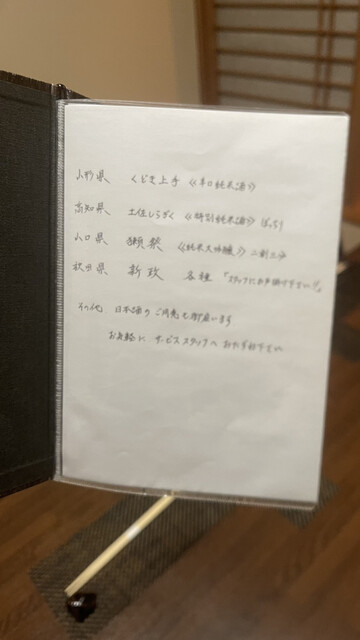 山形県 くどき上手 《辛口純米酒》
高知県 土佐しらぎく 《特別純米酒》 ぼっちり
山口県 獺祭 《純米大吟醸》 二割三分
秋田県 新政 各種 「スタッフにお声掛け下さい!」
その他 日本酒のご用意も御座います
お気軽に サービススタッフへ おたずね下さい